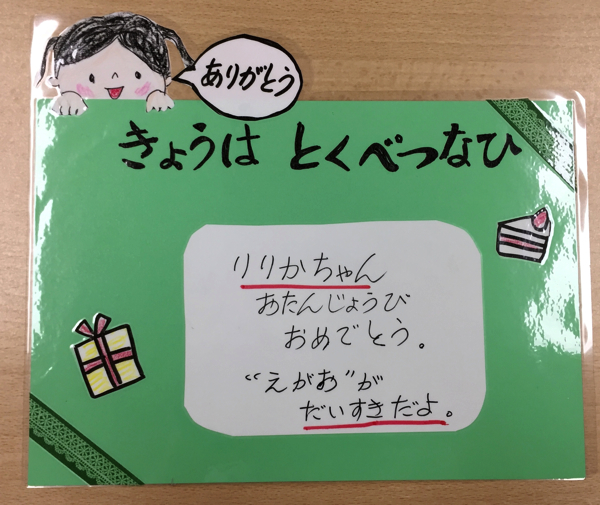 ありがとう
きょうは とくべつなひ
りりかちゃん
おたんじょうび
おめでとう。
“えがお”が
だいすきだよ。